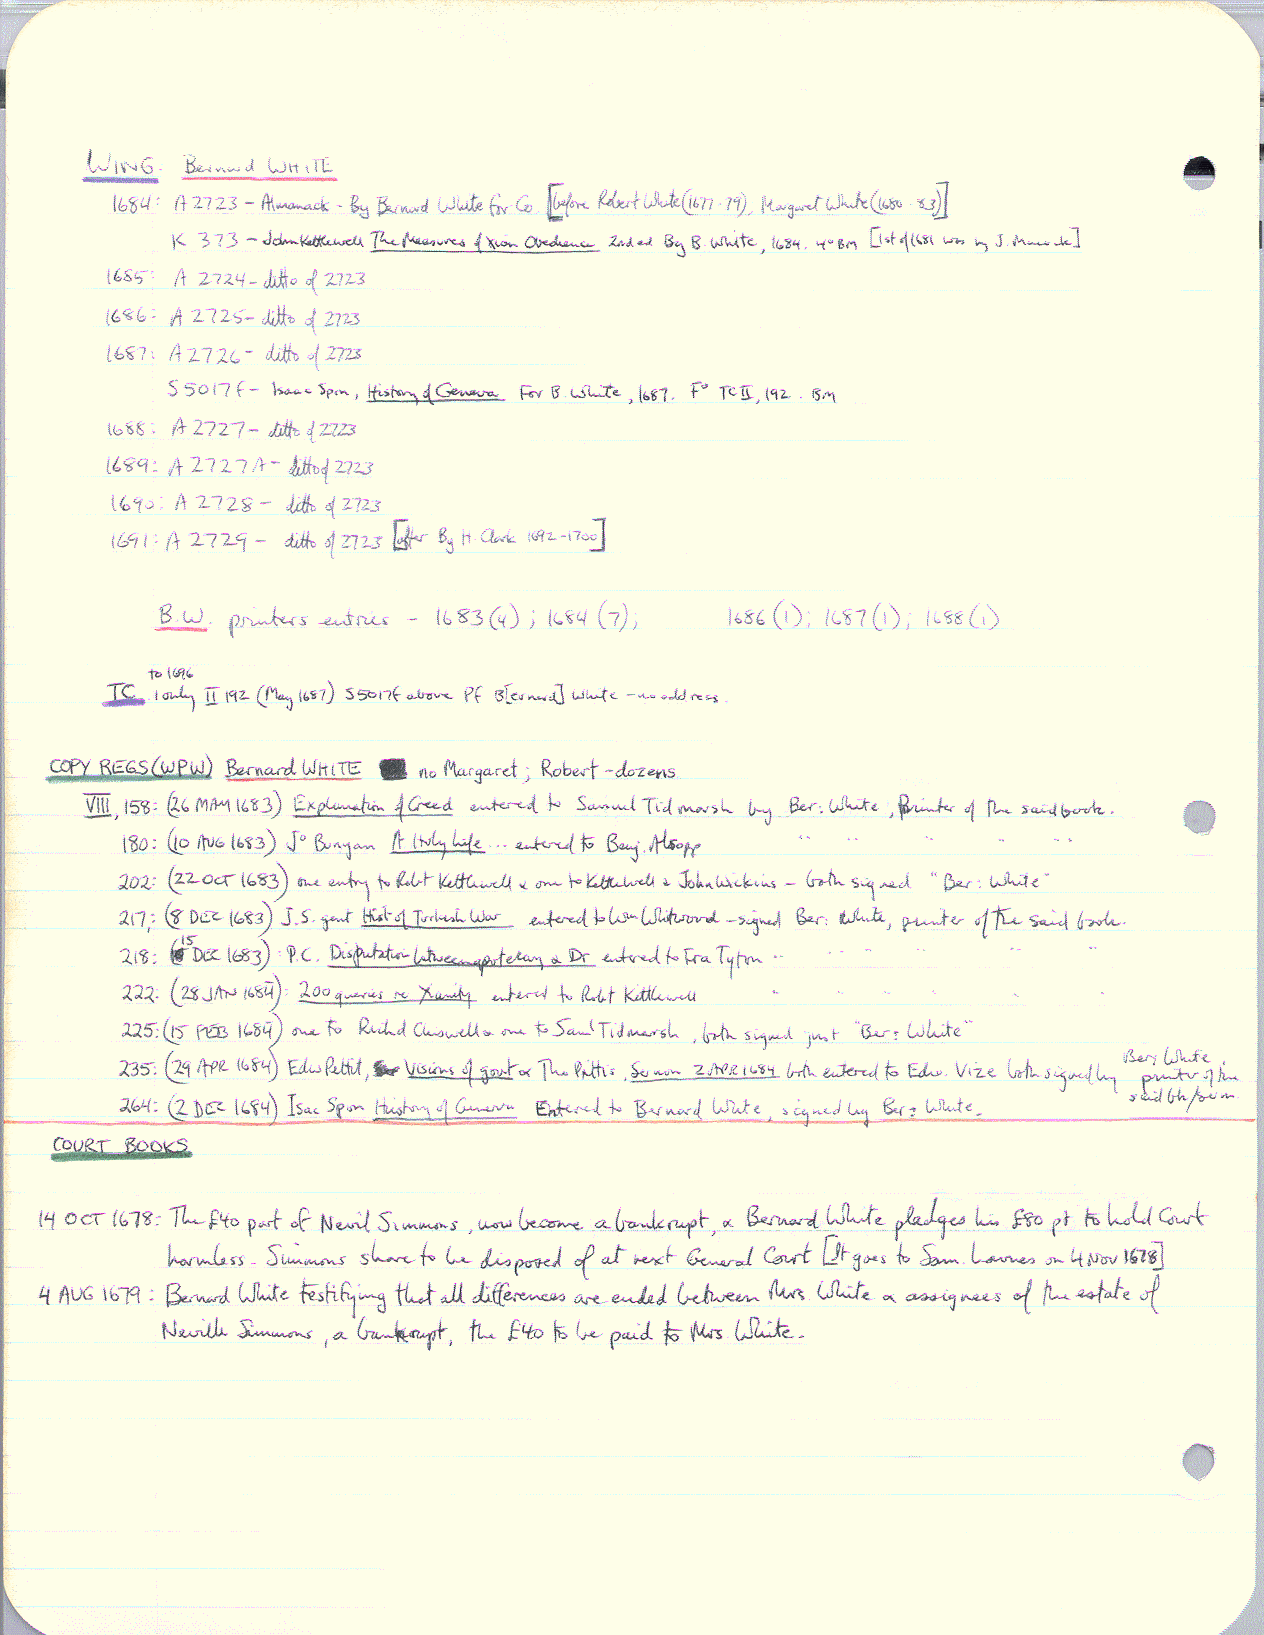 WING. Bernard WHITE
1684: A2723 - Almanack - By Bernard White for Co [before Robert White (1677-79), Margaret White (1680-83)]
K 373 - John Kettlewell The Measures of Xian Obedience 2nd ed By B. White, 1684. 4° BM [1st of 1681 was by J. Macock]
1685: A 2724 - ditto of 2723
1686: A 2725 - ditto of 2723
1687: A 2726 - ditto of 2723
S5017F - Isaac Spon, History of Geneva For B. White, 1687. F° TC II, 192. BM
1688: A 2727 - ditto of 2723
1689: A 2727A - ditto of 2723
1690: A 2728 - ditto of 2723
1691: A 2729 - ditto of 2723 [after By H. Clark 1692-1700]
B.W. printers entries - 1683(4); 1684(7); 1686(1); 1687(1); 1688(1)
to 1696
TC 1 only II 192 (May 1687) S5017F above Pf B[ernard] White - no address.
COPY REGS (WPW) Bernard WHITE no Margaret; Robert - dozens
VIII, 158: (26 MAY 1683) Explanation of Creed entered to Samuel Tidmarsh by Ber: White, Printer of the said book.
180: (10 AUG 1683) Jo Bunyan A Holy Life ... entered to Benj. Alsopp " " " " "
202: (22 OCT 1683) one entry to Robt Kettlewell & one to Kettlewell & John Wickins - both signed "Ber: White"
217: (8 DEC 1683) J.S. gent Hist of Turkish War entered to Wm Whitwood - signed Ber: White, printer of the said book.
218: (15 DEC 1683): P.C. Disputation between apothecary & Dr entered to Fra Tyton " " " " "
222: (28 JAN 1684): 200 queries re Xianity entered to Robt Kettlewell " " " " "
225: (15 FEB 1684) one to Richd Chiswell & one to Saml Tidmarsh, both signed just "Ber: White"
235: (29 APR 1684) Edw Pettit, Visions of govt & Tho Pittis, Sermon 2 APR 1684 both entered to Edw. Vize both signed by Ber: White, printer of the said bk/serm.
264: (2 DEC 1684) Isac Spon History of Geneva Entered to Bernard White, signed by Ber: White.
COURT BOOKS
14 OCT 1678: The £40 part of Nevil Simmons, now become a bankrupt, & Bernard White pledges his £80 pt to hold Court
harmless. Simmons share to be disposed of at next General Court [It goes to Sam. Lownes on 4 Nov 1678]
4 AUG 1679: Bernard White testifying that all differences are ended between Mrs. White & assignees of the estate of
Neville Simmons, a bankrupt, the £40 to be paid to Mrs. White.